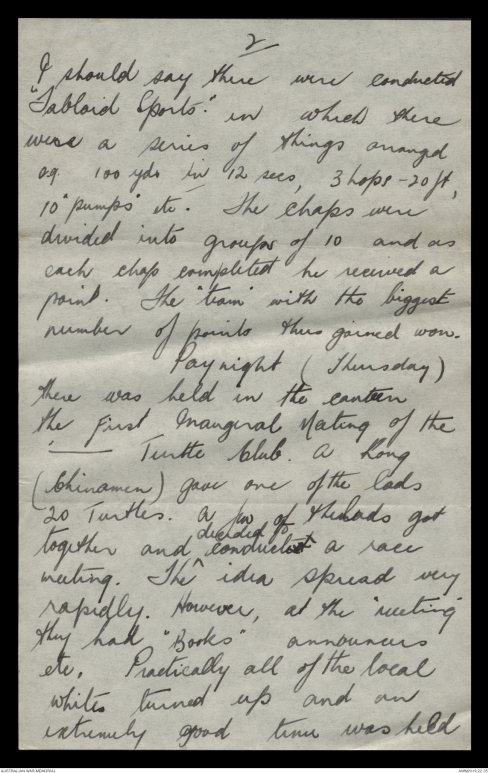 2
I should say there were conducted
"Tabloid Sports." in which there
were a series of things arranged
e.g. 100 yds in 12 secs, 3 hops - 20 ft,
10 "pumps" etc. The chaps were
divided into groups of 10 and as
each chap completed he received a
point. The "team" with the biggest
number of points thus gained won.
Paynight (Thursday)
there was held in the canteen
the First Inaugral Meeting of the
' —— Turtle Club. A Kong
(Chinamen) gave one of the lads
20 Turtles. A few of the lads got
together and decided to conduct a race
meeting. The idea spread very
rapidly. However, at the "meeting"
they had "Books" announcers
etc. Practically all of the local
whites turned up and an
extremely good time was held
AUSTRALIAN WAR MEMORIAL